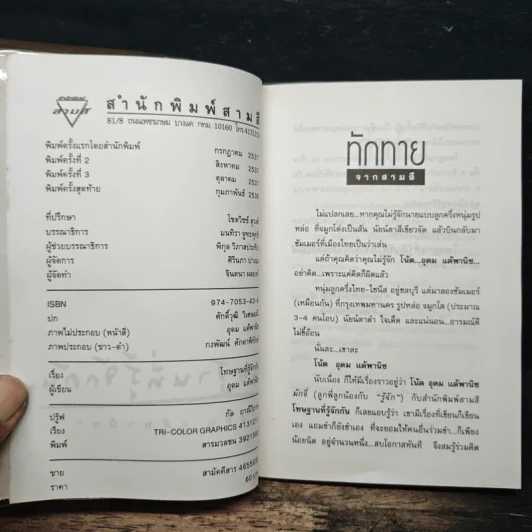 สำนักพิมพ์สามสี
สำนักพิมพ์สามสี
81/8 ถนนเพชรเกษม บางแค กทม. 10160 โทร.
พิมพ์ครั้งแรกโดยสำนักพิมพ์ กรกฎาคม 2537
พิมพ์ครั้งที่ 2 สิงหาคม 2537
พิมพ์ครั้งที่ 3 ตุลาคม 2537
พิมพ์ครั้งสุดท้าย กุมภาพันธ์
ที่ปรึกษา โชตวิชช์
บรรณาธิการ มนทิรา
ผู้ช่วยบรรณาธิการ พิกุล
ผู้จัดการ ศิรินภา
ผู้จัดทำ จินตนา
ISBN 974-7053-43-
ปก ศักดิ์วุฒิ วิเศษมณี
ภาพไม่ประกอบ (หน้าสี) อุดม แต้พานิช
ภาพประกอบ (ขาว-ดำ) กงพัฒน์ ศักดาพิทักษ์
เรื่อง โทษฐานที่รู้จักกัน
ผู้เขียน อุดม แต้พานิช
ปรู๊ฟ กัล
เรียง TRI-COLOR GRAPHICS 413121
พิมพ์ สารมวลชน
ขาย สามัคคีสาร
ราคา
ทักทาย
จากสามสี
ไม่แปลกเลย...หากคุณไม่รู้จักนายแบบลูกครึ่งหนุ่มรูป
หล่อ ที่จมูกโด่งเป็นสัน นัยน์ตาสีเขียวจัด แล้วบินกลับมา
ซัมเมอร์ที่เมืองไทยเป็นว่าเล่น
แต่ถ้าคุณคิดว่าคุณไม่รู้จัก โน้ต...อุดม แต้พานิช...
อย่าคิด...เพราะแค่คิดก็ผิดแล้ว
หนุ่มลูกครึ่งไทย-ไชนีส อยู่ชลบุรี แต่มาลองซัมเมอร์
(เหมือนกัน) ที่กรุงเทพมหานคร รูปหล่อ จมูกโต (ประมาณ
3-4 คนโอบ) นัยน์ตาดำ ใจเด็ด และแน่นอน...อารมณ์ดี
ไม่ขี้อ้อน
นั่นละ...เขาละ
โน้ต อุดม แต้พานิช
นับเนื่อง ก็ให้มีเรื่องราวอยู่ว่า โน้ต อุดม แต้พานิช
มักจี่ (ลูกพี่ลูกน้องกับ “รู้จัก”) กับสำนักพิมพ์สามสี
โทษฐานที่รู้จักกัน ก็เลยแอบรู้ว่า เขามีเรื่องที่เขียนก็เขียน
เอง แถมขำก็ยังขำเอง ที่จะยอมให้คนอื่นร่วมขำ...ก็เพียง
น้อยนิด อยู่จำนวนหนึ่ง...สบโอกาสทันที จึงสมรู้ร่วมคิด